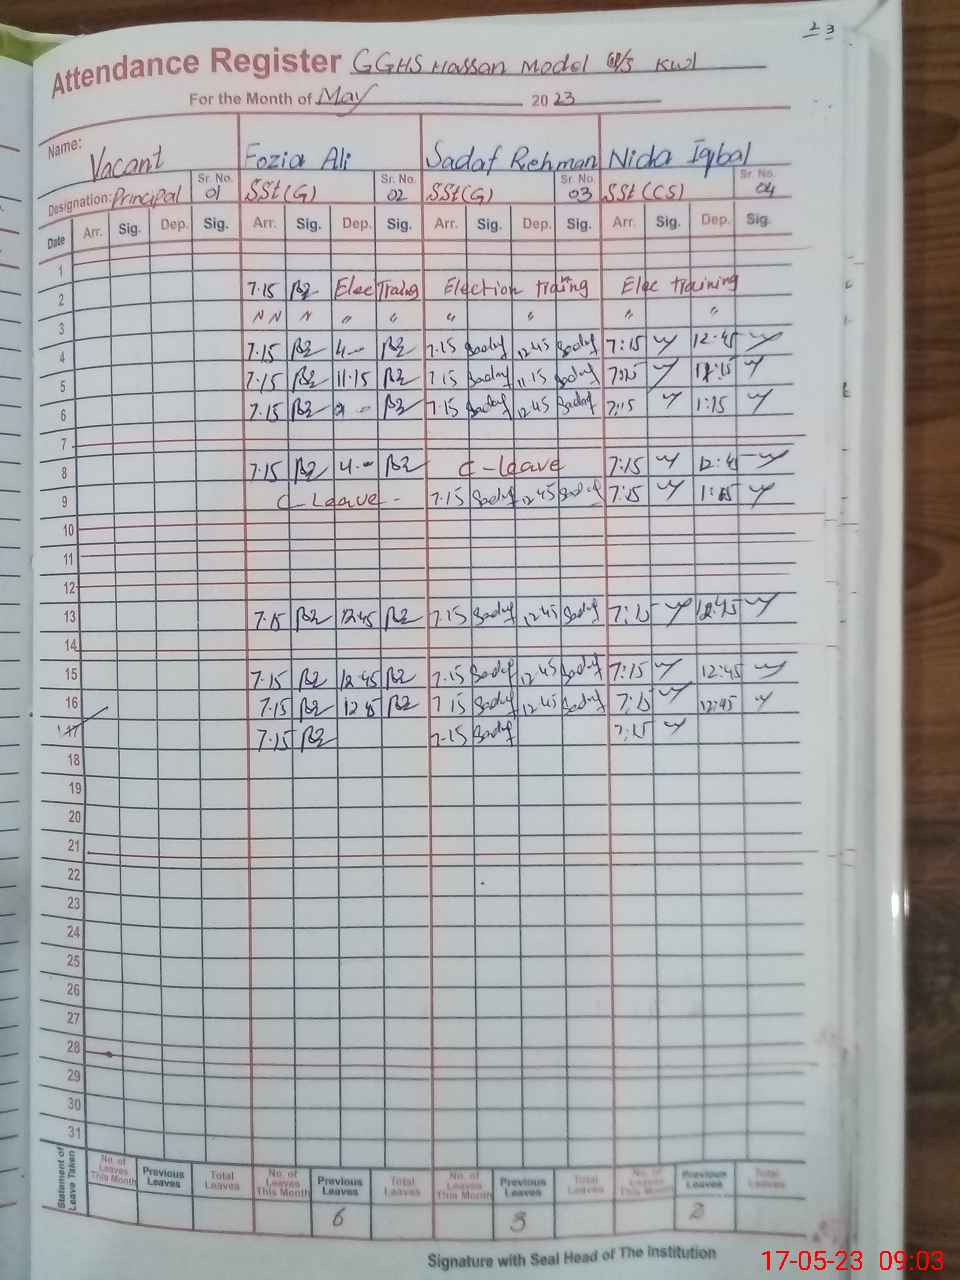 2 3
Attendance Register GGHS Hassan Model G/S KWL
For the Month of May 2023
Name: Vacant Fozia Ali Sadaf Rehman Nida Iqbal
Designation: Principal Sr. No. 01 SSt (G) Sr. No. 02 SSt (G) Sr. No. 03 SSt (CS) Sr. No. 04
Date Arr. Sig. Dep. Sig. Arr. Sig. Dep. Sig. Arr. Sig. Dep. Sig. Arr. Sig. Dep. Sig.
1
2 7.15 Elec Traing Election training Elec training
3 〃 〃 〃 〃 〃 〃
4 7.15 4-- 7.15 Sadaf 12.45 Sadaf 7:15 12:45
5 7.15 11.15 7.15 Sadaf 11.15 Sadaf 7:15
6 7.15 7.15 Sadaf 12.45 Sadaf 7:15 1:15
7
8 7.15 4-- C-leave 7:15 12:45
9 C-Leave - 7.15 Sadaf 12.45 Sadaf 7:15
10
11
12
13 7.15 12.45 7.15 Sadaf 12.45 Sadaf 7:15 12:45
14
15 7.15 12.45 7.15 Sadaf 12.45 Sadaf 7:15 12:45
16 7.15 12.45 7.15 Sadaf 12.45 Sadaf 7:15 12:45
17 7.15 7.15 Sadaf 7:15
18
19
20
21
22
23
24
25
26
27
28
29
30
31
Statement of Leave Taken No. of Leaves This Month Previous Leaves Total Leaves No. of Leaves This Month Previous Leaves Total Leaves No. of Leaves This Month Previous Leaves Total Leaves No. of Leaves This Month Previous Leaves Total Leaves
6 3 2
Signature with Seal Head of The Institution
17-05-23 09:03